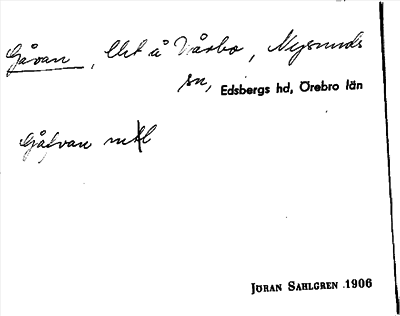 Gåvan, lht å Vårbo, Nysunds
sn, Edsbergs hd, Örebro län
Gåfvan mtl
JÖRAN SAHLGREN 1906